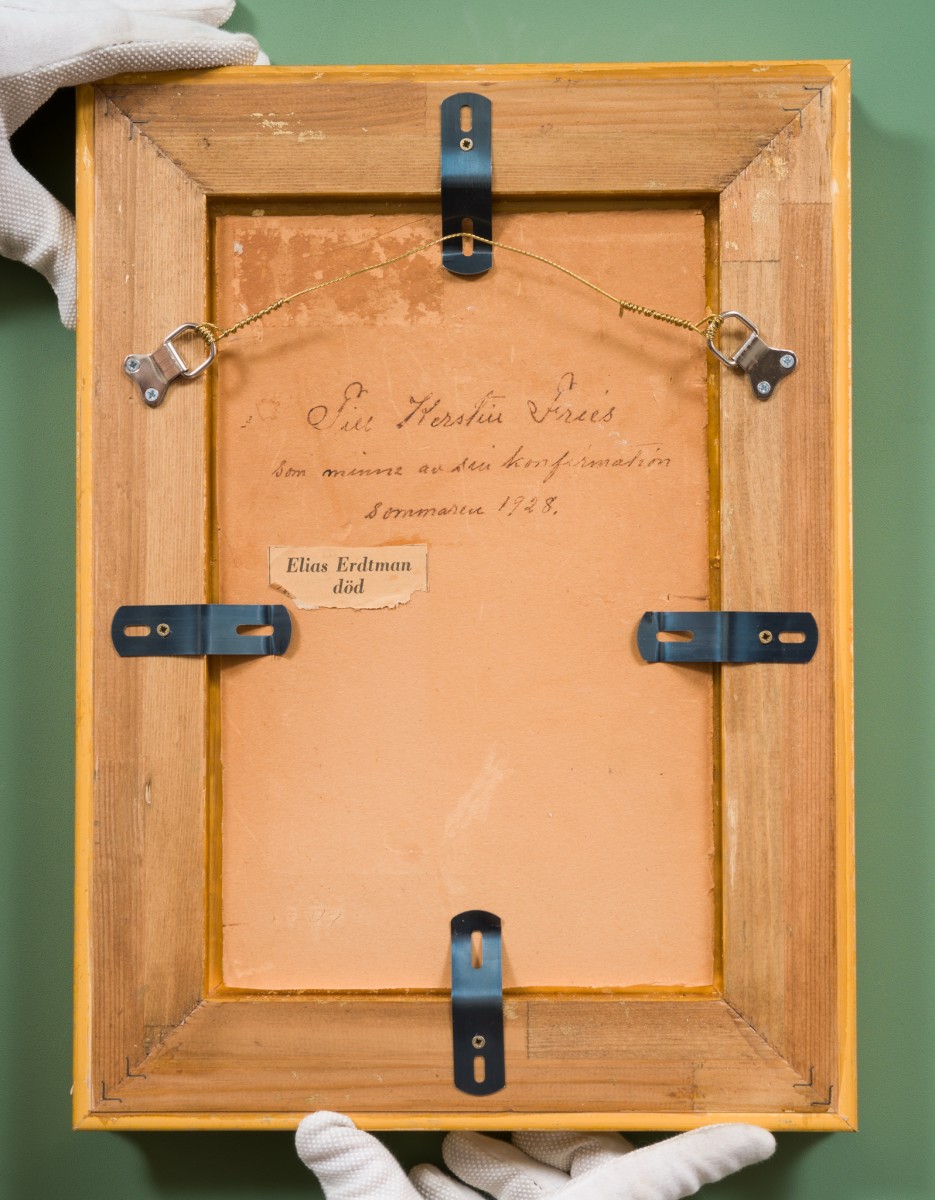 Till Kerstin Fries
som minne av din konfirmation
sommaren 1928.
Elias Erdtman
död